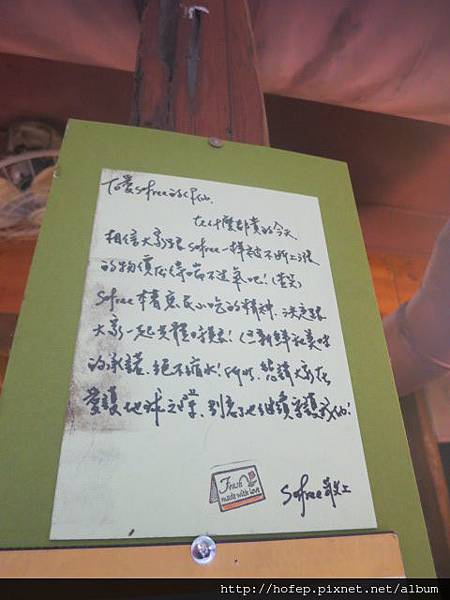 在什麼都貴的今天
相信大家跟 Sofree 一樣被不斷上漲
的物價壓得喘不過氣吧！(苦笑)
Sofree 本著庶民小吃的精神，決定跟
大家一起共體時艱！但新鮮和美味
的承諾，絕不縮水！所以，懇請大家在
愛護地球之餘，別忘了也繼續愛護我們！
Fresh
made with love
Sofree 敬上
http://hofep.pixnet.net/album